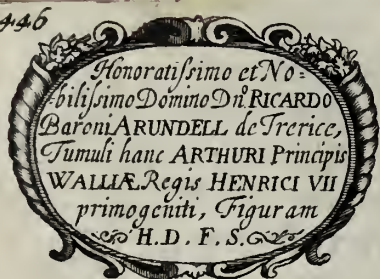 446
Honoratissimo et No=
=bilissimo Domino Dn̊. RICARDO
Baroni ARUNDELL de Trerice,
Tumuli hanc ARTHURI Principis
WALLIÆ Regis HENRICI VII
primogeniti, Figuram
H. D. F. S.